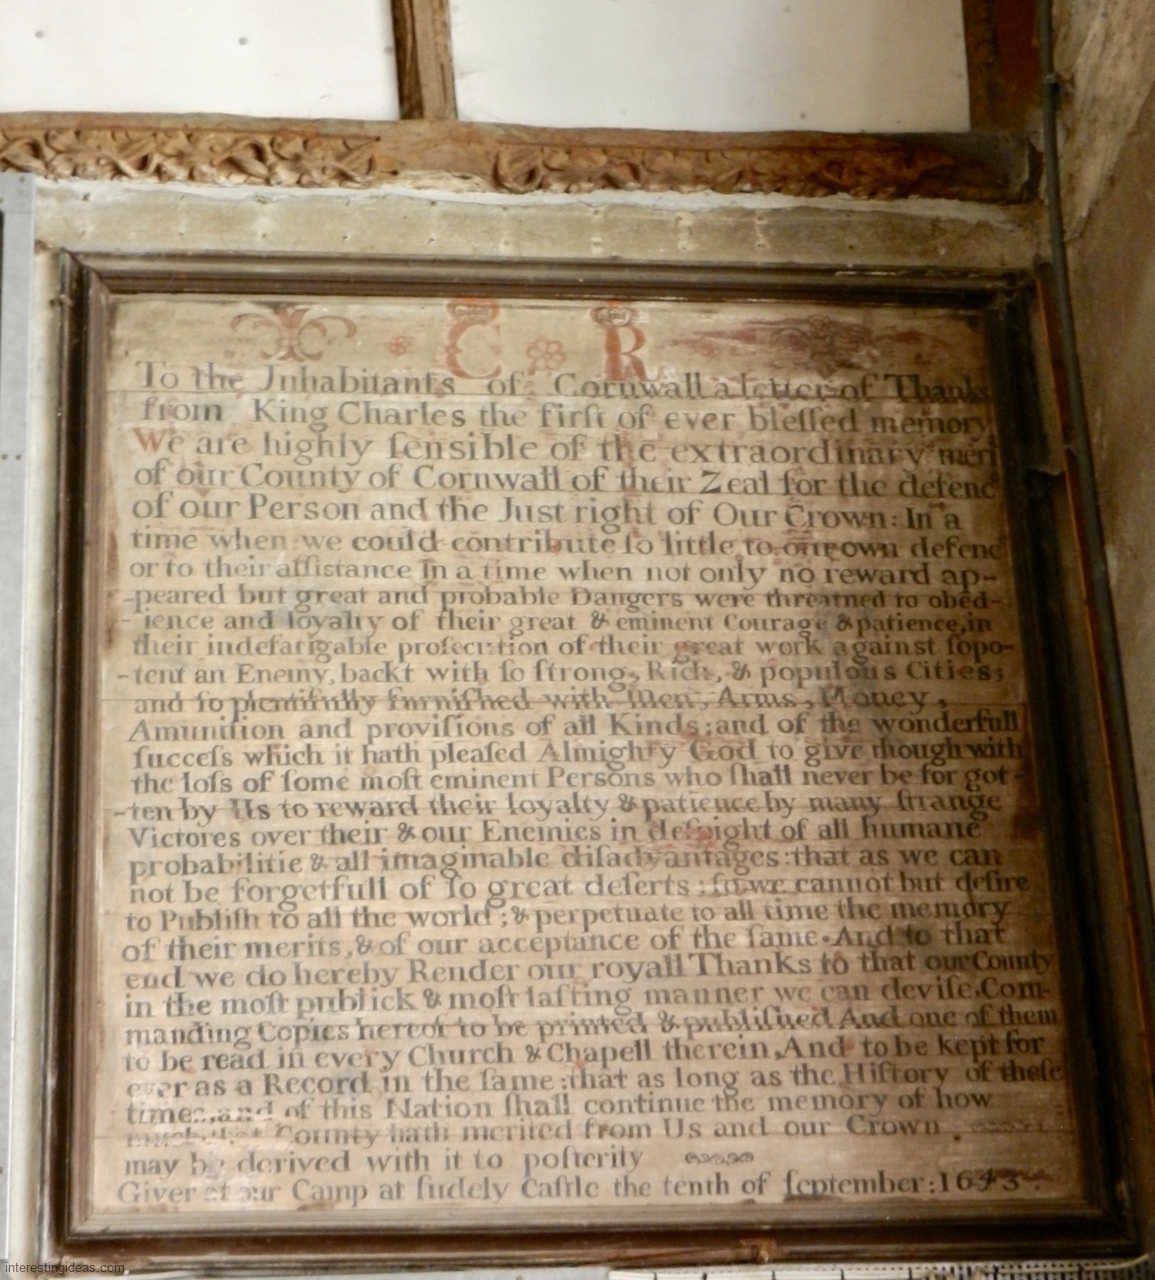 C R
To the Inhabitants of Cornwall a letter of Thanks
from King Charles the firſt of ever bleſsed memory
We are highly ſensible of the extraordinary meri
of our County of Cornwall of their Zeal for the defenc
of our Person and the Just right of Our Crown: In a
time when we could contribute ſo little to our own defenc
or to their aſsistance In a time when not only no reward ap-
-peared but great and probable Dangers were threatned to obed-
-ience and loyalty of their great & eminent Courage & patience, in
their indefatigable proſecution of their great work against ſopo-
-tent an Enemy, backt with ſo ſtrong, Rich, & populous Cities;
and ſo plentifully furniſhed with Men, Arms, Money,
Amuniſion and proviſions of all Kinds; and of the wonderfull
ſucceſs which it hath pleaſed Almighty God to give though with
the loſs of ſome moſt eminent Persons who ſhall never be for got-
-ten by Us to reward their loyalty & patience by many ſtrange
Victores over their & our Enemies in deſpight of all humane
probabilitie & all imaginable diſadvantages: that as we can
not be forgetfull of ſo great deſerts: ſo we cannot but deſire
to Publiſh to all the world; & perpetuate to all time the memory
of their merits, & of our acceptance of the ſame. And to that
end we do hereby Render our royall Thanks to that our County
in the moſt publick & moſt laſting manner we can deviſe, Com-
manding Copies hereof to be printed & publiſhed And one of them
to be read in every Church & Chapell therein, And to be kept for
ever as a Record in the ſame: that as long as the Hiſtory of theſe
times, and of this Nation ſhall continue the memory of how
County hath merited from Us and our Crown.
may be derived with it to poſterity
Given at our Camp at ſudely Caſtle the tenth of ſeptember: 1643:
interestingideas.com